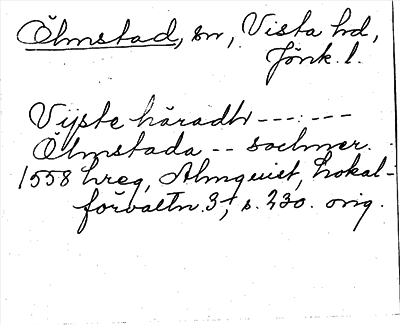 Ölmstad, sn, Vista hd,
Jönk. l.
Vijste häradh - - - - - -
Ölmstada - - sochner.
1558 hreg, Almquist, Lokal-
förvaltn. 3, s. 230. orig.